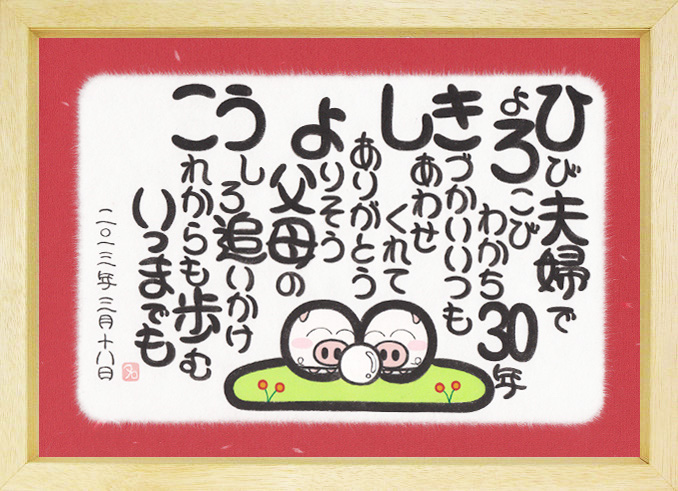 ひび夫婦で
よろこび
わかち30年
きづかいいつも
しあわせ
くれて
ありがとう
よりそう
父母の
うしろ追いかけ
これからも歩む
いつまでも
二〇一三年 三月十八日